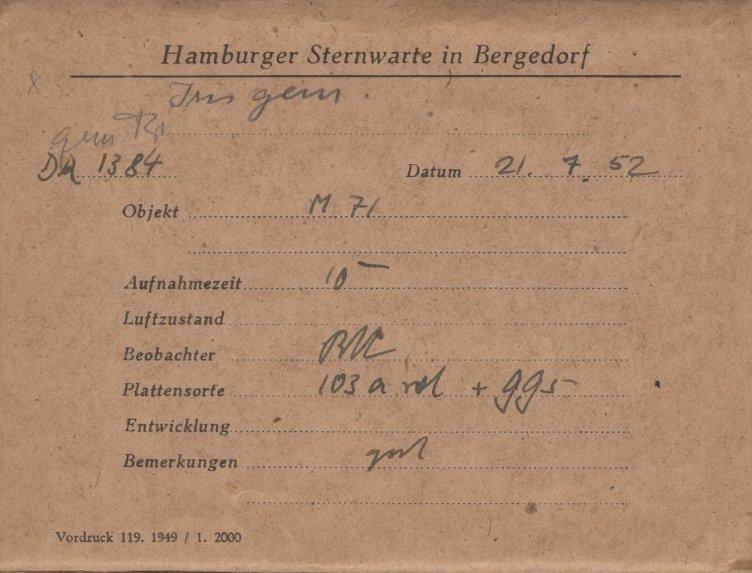 Hamburger Sternwarte in Bergedorf
gem.
gem
DR 1384 Datum 21. 7. 52
Objekt M 71
Aufnahmezeit 10
Luftzustand
Beobachter
Plattensorte 103 a rot + gg5
Entwicklung
Bemerkungen gut
Vordruck 119. 1949 / 1. 2000